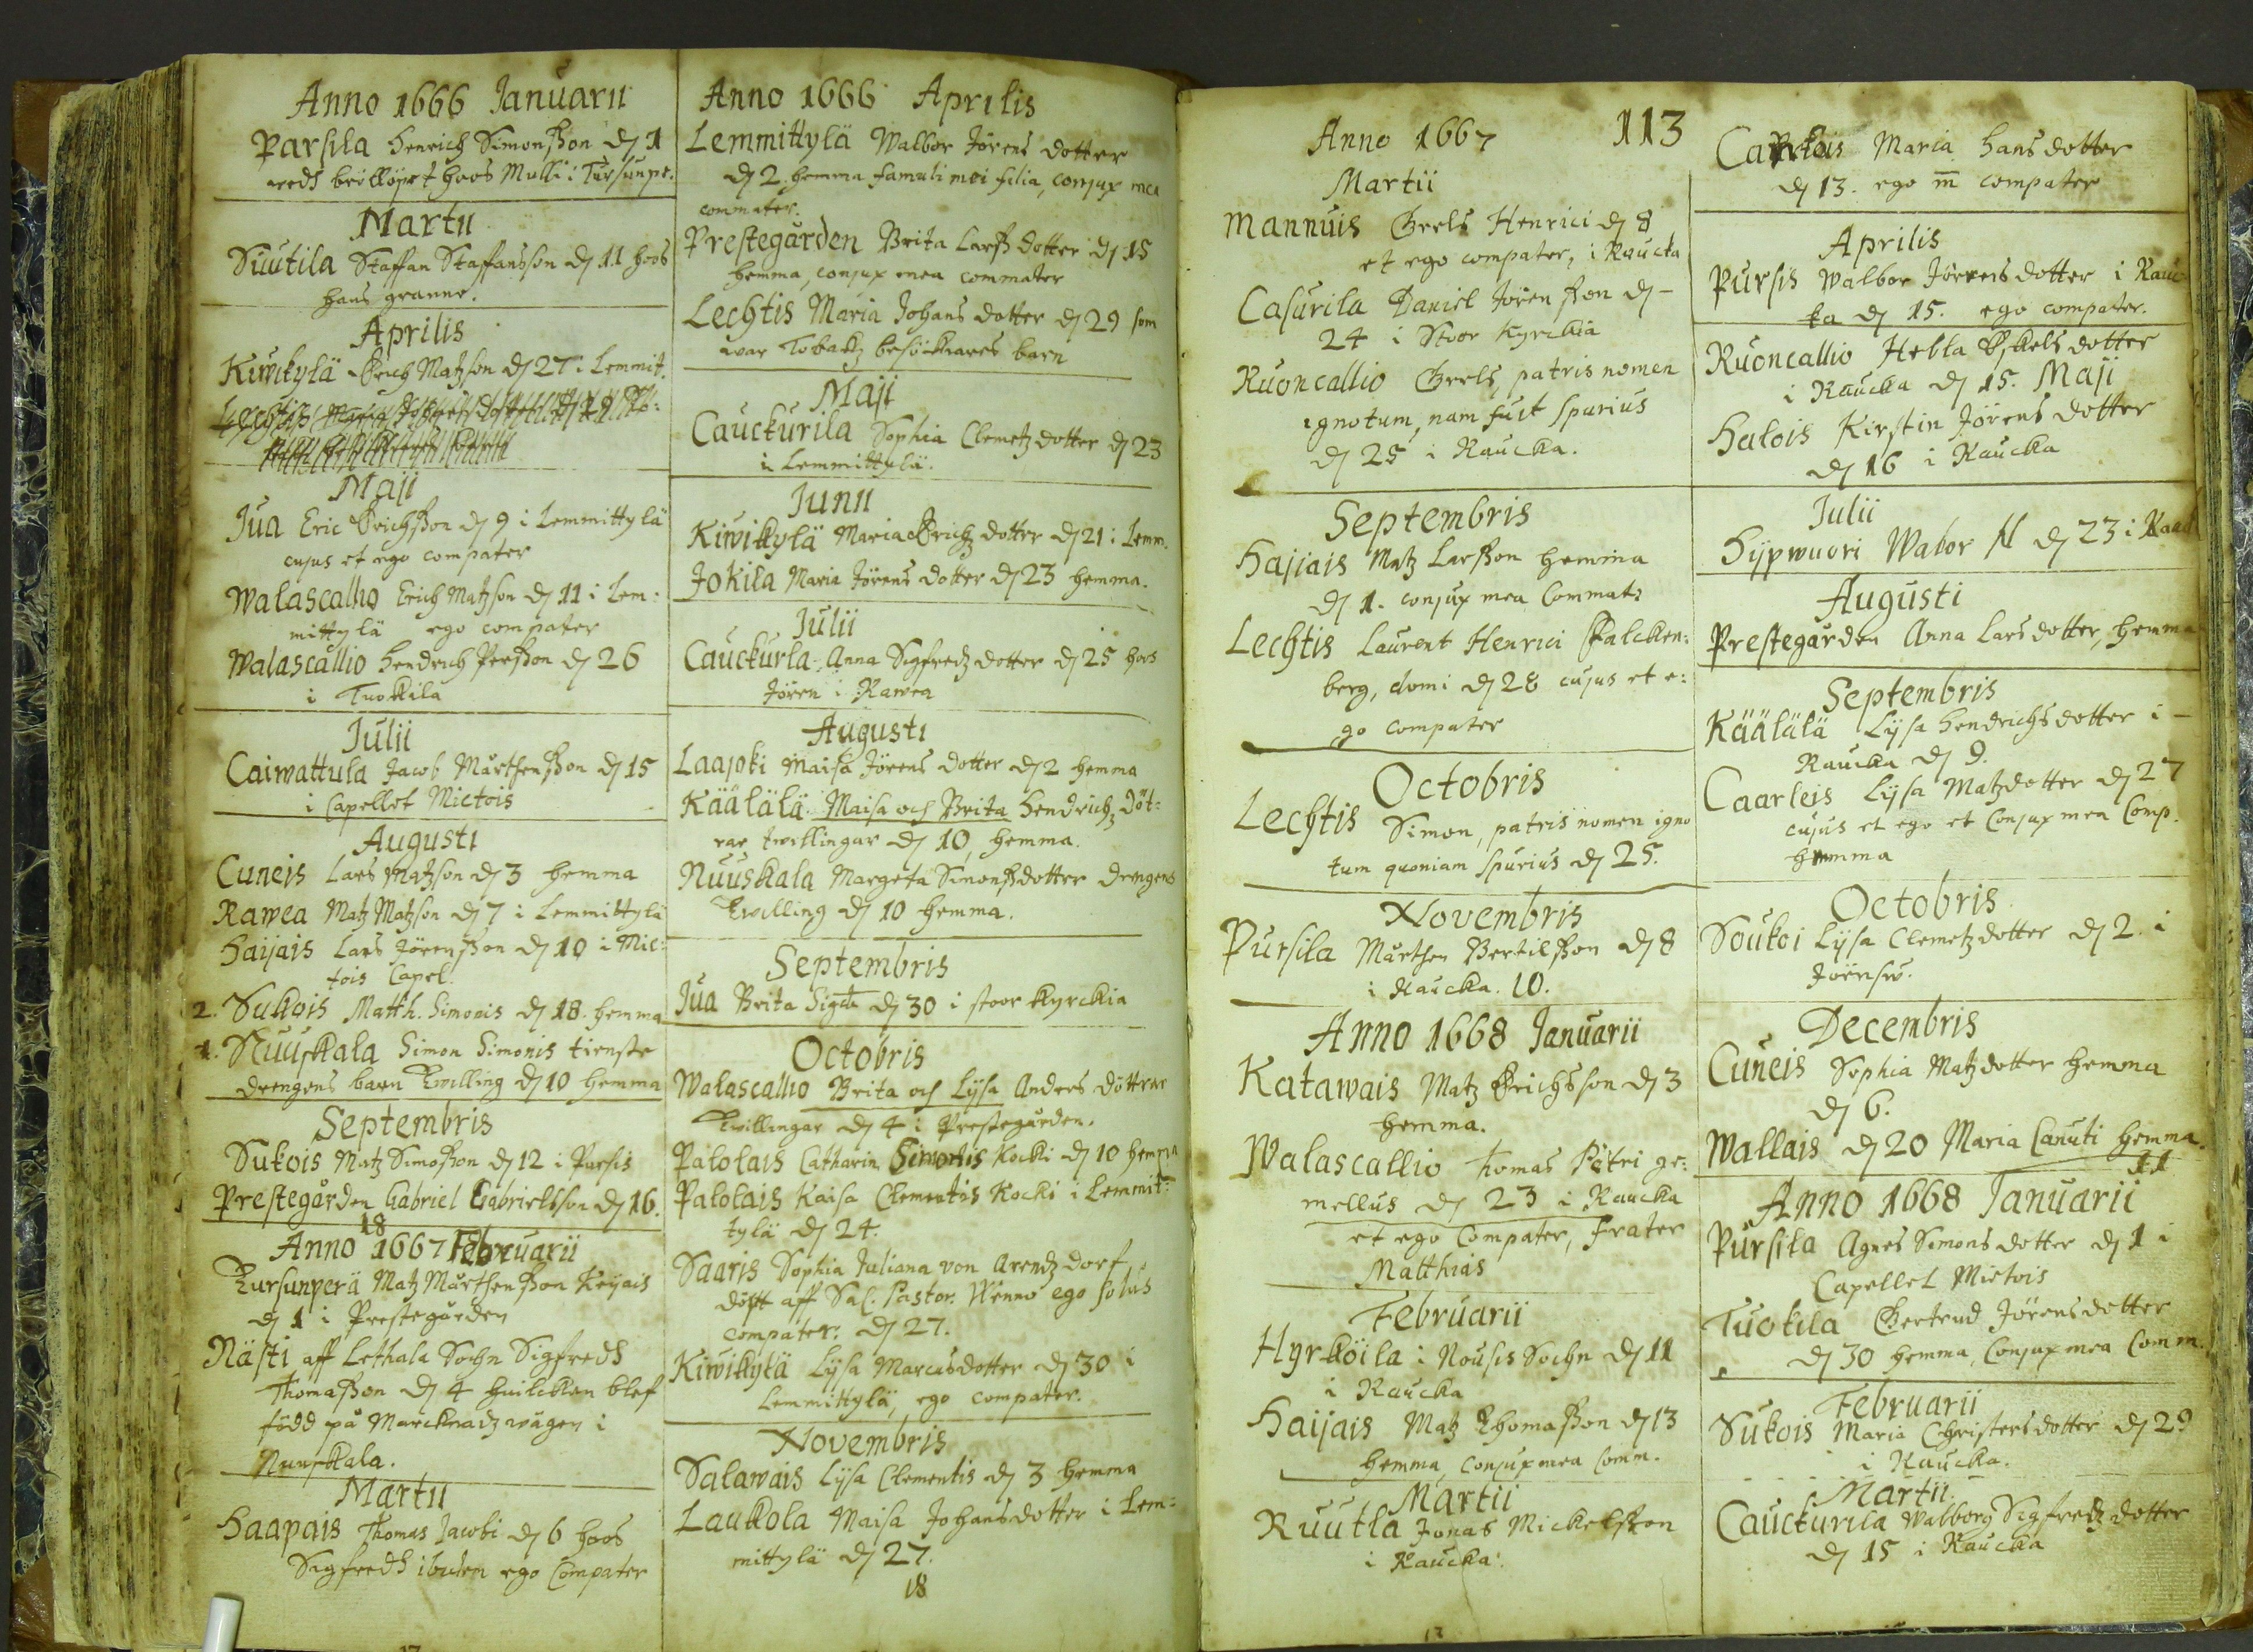 Anno 1666 Januarii
Parsila Henrich Simonßon dj 1
weds bröllöpet hoos Mulli i Tursunpe.
Martii
Suutila Staffan Staffansson dj 11 hoos
hans granne.
Aprilis
Kiwikylä Erich Matzson dj 27 i Lemmit.
Lechtis Maria Johans dotter dj 29
Maji
Jua Eric Erichßon dj 9 i Lemmittylä
cujus et ego compater
Walascallio Erich Matzson dj 11 i Lem:
mittylä ego compater
Walascallio Hendrich Perßon dj 26
i Tuokila
Julii
Caiwattula Jacob Mårthenßon dj 15
i Capellet Mietois
Augusti
Cuneis Lars Matzson dj 3 hemma
Rawea Matz Matzson dj 7 i Lemmittylä
Haijais Lars Jörenßon dj 10 i Mie:
tois Capel.
2. Sukois Matth. Simonis dj 18. hemma
1. Nuuskala Simon Simonis tienste
drengens barn Twilling dj 10 hemma
Septembris
Sukois Matz Simoßon dj 12 i Pursis
Prestegården Gabriel Gabrielsson dj 16.
18
Anno 1667 Februarii
Tursunperä Matz Mårthenßon Keijais
dj 1 i Prestegården
Nästi aff Lethala Sochn Sigfreds
Thomaßon dj 4 huilcken blef
född på Marcknadz wägen i
Nuuskala.
Martii
Haapais Thomas Jacobi dj 6 hoos
Sigfreds ibidem ego Compater
Anno 1666 Aprilis
Lemmittylä Walbor Jörens dotter
dj 2. hemma famuli mei filia, conjux mea
commater.
Prestegården Brita Larß dotter dj 15
hemma, conjux mea commater
Lechtis Maria Johans dotter dj 29 som
war Tobakz besökares barn
Maji
Cauckurila Sophia Clemetz dotter dj 23
i Lemmittylä.
Junii
Kiwikylä Maria Erichz dotter dj 21 i Lemm.
Jokila Maria Jörens dotter dj 23 hemma.
Julii
Cauckurla Anna Sigfredz dotter dj 25 hoos
Jören i Rawea
Augusti
Laajoki Maisa Jörens dotter dj 2 hemma
Käälälä Maisa och Brita Hendrichz Döt:
rar twillingar dj 10, hemma.
Nuuskala Margeta Simonßdotter drengens
Twilling dj 10 hemma.
Septembris
Jua Brita Sigdr dj 30 i stoor kyrckia
Octobris
Walascallio Brita och Lijsa Anders döttrar
Twillingar dj 4 i Prestegården.
Palolais Catharin Simonis Kocki dj 10 hemma
Palolais Kaisa Clementis Kocki i Lemmit:
tylä dj 24.
Saaris Sophia Juliana von Arendz dorf,
döpt aff Sal. Pastor. Wenno ego solus
compater. dj 27.
Kiwikylä Lijsa Marcusdotter dj 30 i
Lemmittylä, ego compater.
Novembris
Salawais Lijsa Clementis dj 3 hemma
Laukola Maisa Johansdotter i Lem:
mittylä dj 27.
18
Anno 1667
113
Martii
Mannuis Greels Henrici dj 8
et ego compater, i Raucka
Casurila Daniel Jörenßon dj –
24 i Stoor Kyrckia
Ruoncallio Greels, patris nomen
ignotum, nam fuit spurius
dj 25 i Raucka.
Septembris
Hajiais Matz Larßon hemma
dj 1. conjux mea Commat:
Lechtis Laurent Henrici Falcken:
berg, domi dj 28 cujus et e:
go compater
Octobris
Lechtis Simon, patris nomen igno
tum quoniam spurius dj 25.
Novembris
Pursila Mårthen Bertilßon dj 8
i Raucka. 10.
Anno 1668 Januarii
Katawais Matz Erichsson dj 3
hemma.
Walascallio Thomas Petri ge:
mellus dj 23 i Raucka
et ego Compater, Frater
Matthias
Februarii
Hyrköila i Nousis Sochn dj 11
i Raucka
Haijais Matz Thomaßon dj 13
hemma, conjux mea Comm.
Martii
Ruutla Jonas Mickelßon
i Raucka.
Carleis Maria Hans dotter
dj 13. ego m̄ compater
Aprilis
Pursis Walbor Jörensdotter i Rauc
ka dj 15. ego compater.
Ruoncallio Hebla Eskels dotter
i Raucka dj 15. Maji
Halois Kirstin Jörens dotter
dj 16 i Raucka
Julii
Hijpwuori Wabor N dj 23 i Rauc
Augusti
Prestegården Anna Lars dotter, hemma
Septembris
Käälälä Lijsa Hendrichsdotter i –
Raucka dj 9.
Caarleis Lijsa Matzdotter dj 27
cujus et ego et Conjux mea Comp.
hemma
Octobris
Soukoi Lijsa Clemetzdotter dj 2. i
Decembris
Cuneis Sophia Matzdotter hemma
dj 6.
Wallais dj 20 Maria Canuti hemma.
11
Anno 1668 Januarii
Pursila Agnes Simonsdotter dj 1 i
Capellet Mietois
Tuokila Gertrud Jörensdotter
dj 30 hemma, Conjux mea Comm.
Februarii
Sukois Maria Christersdotter dj 29
i Raucka.
Martii.
Cauckurila Walborg Sigfredz dotter
dj 15 i Raucka